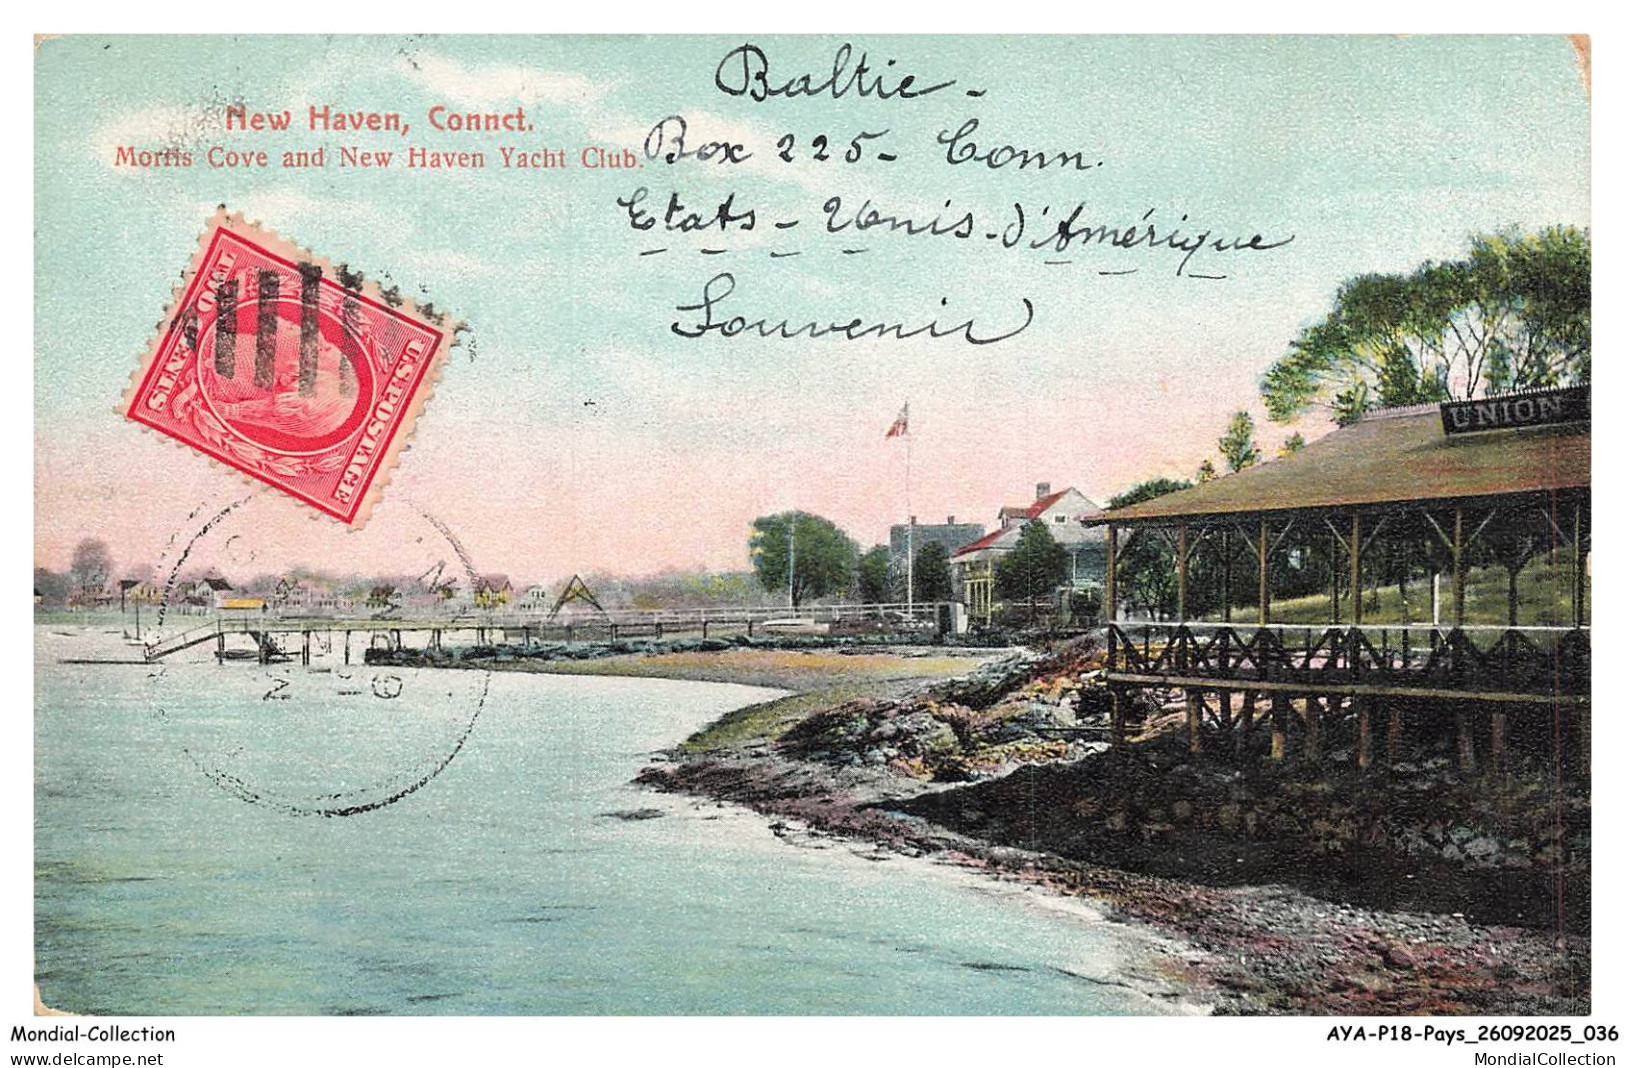 Baltic -
Box 225 - Conn.
Etats - Unis - d'Amérique
Souvenir
New Haven, Connct.
Morris Cove and New Haven Yacht Club.
TWO CENTS
U.S. POSTAGE
UNION
Mondial-Collection
delcampe.net
AYA-P18-Pays_26092025_036
MondialCollection